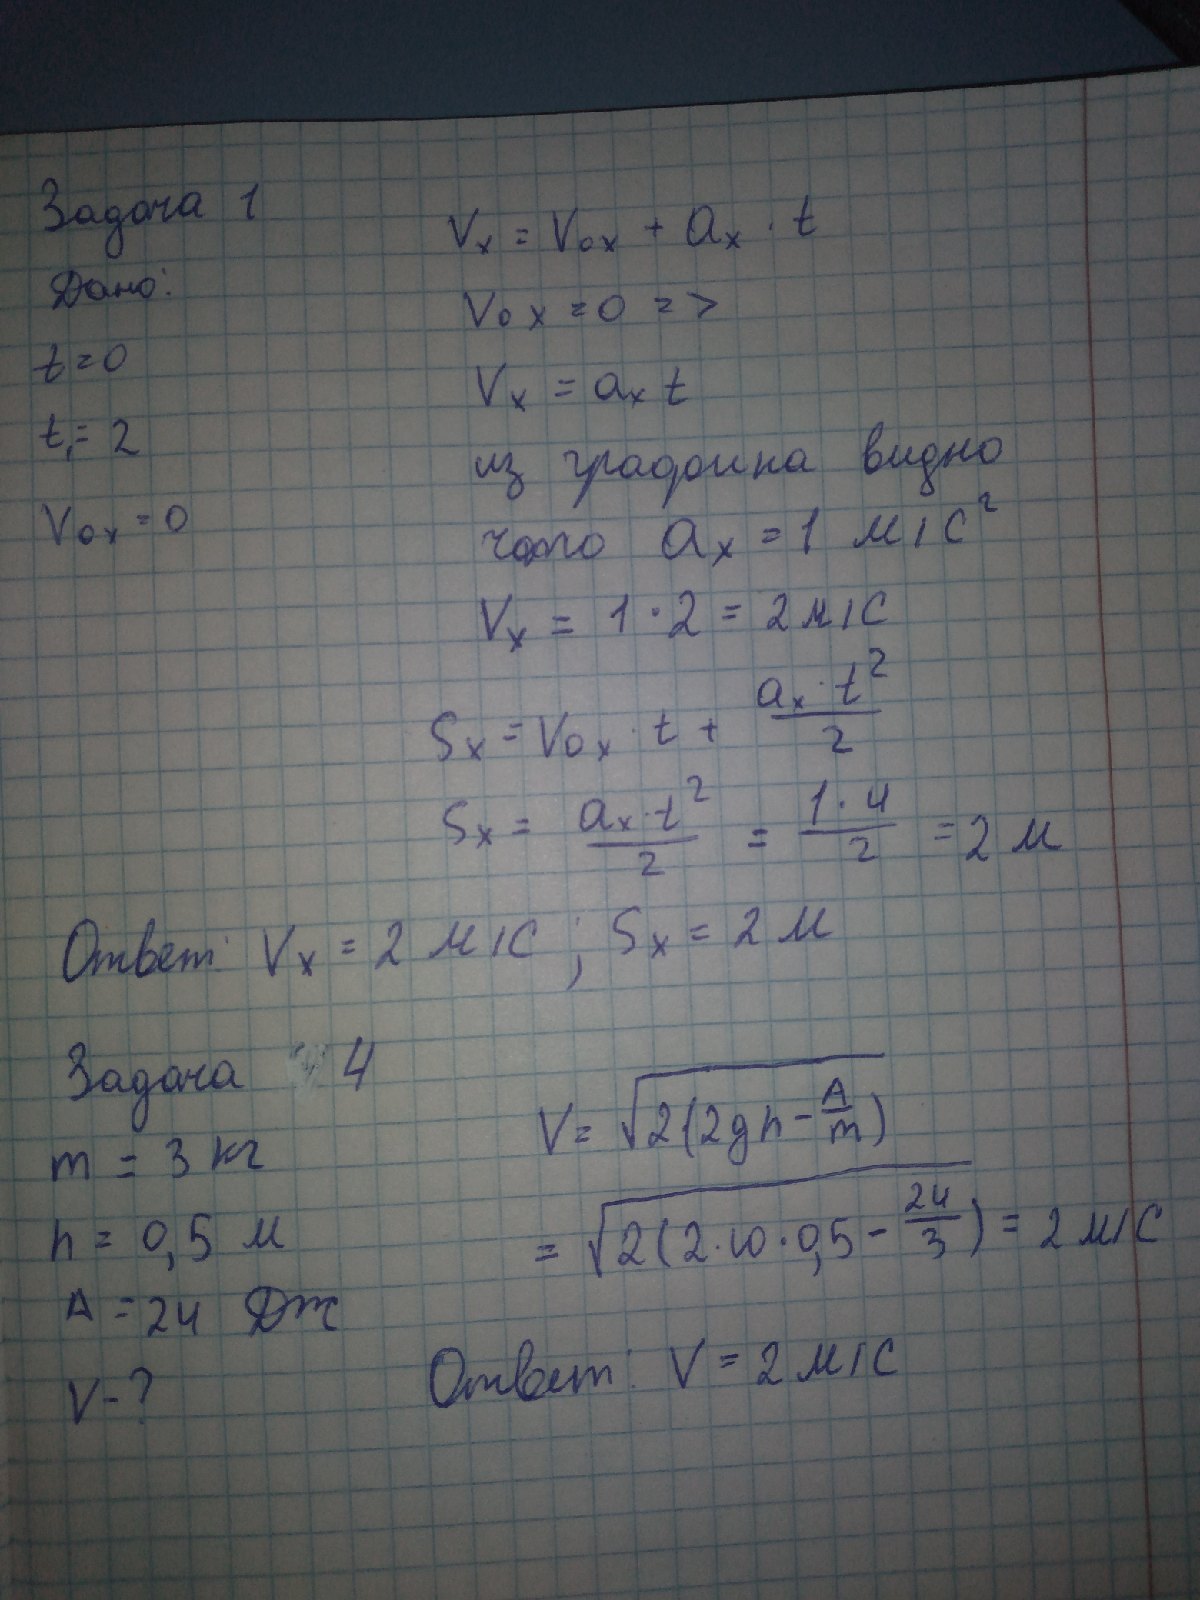 Задача 1
Дано:
t=0
t₁=2
V₀ₓ=0
Vₓ = V₀ₓ + aₓ · t
V₀ₓ = 0 =>
Vₓ = aₓ t
из графика видно
что aₓ = 1 м/с²
Vₓ = 1 · 2 = 2 м/с
Sₓ = V₀ₓ · t + aₓ · t² / 2
Sₓ = aₓ · t² / 2 = 1 · 4 / 2 = 2 м
Ответ: Vₓ = 2 м/с ; Sₓ = 2 м
Задача 4
m = 3 кг
h = 0,5 м
A = 24 Дж
V - ?
V = √2(2gh - A/m)
= √2(2·10·0,5 - 24/3) = 2 м/с
Ответ: V = 2 м/с